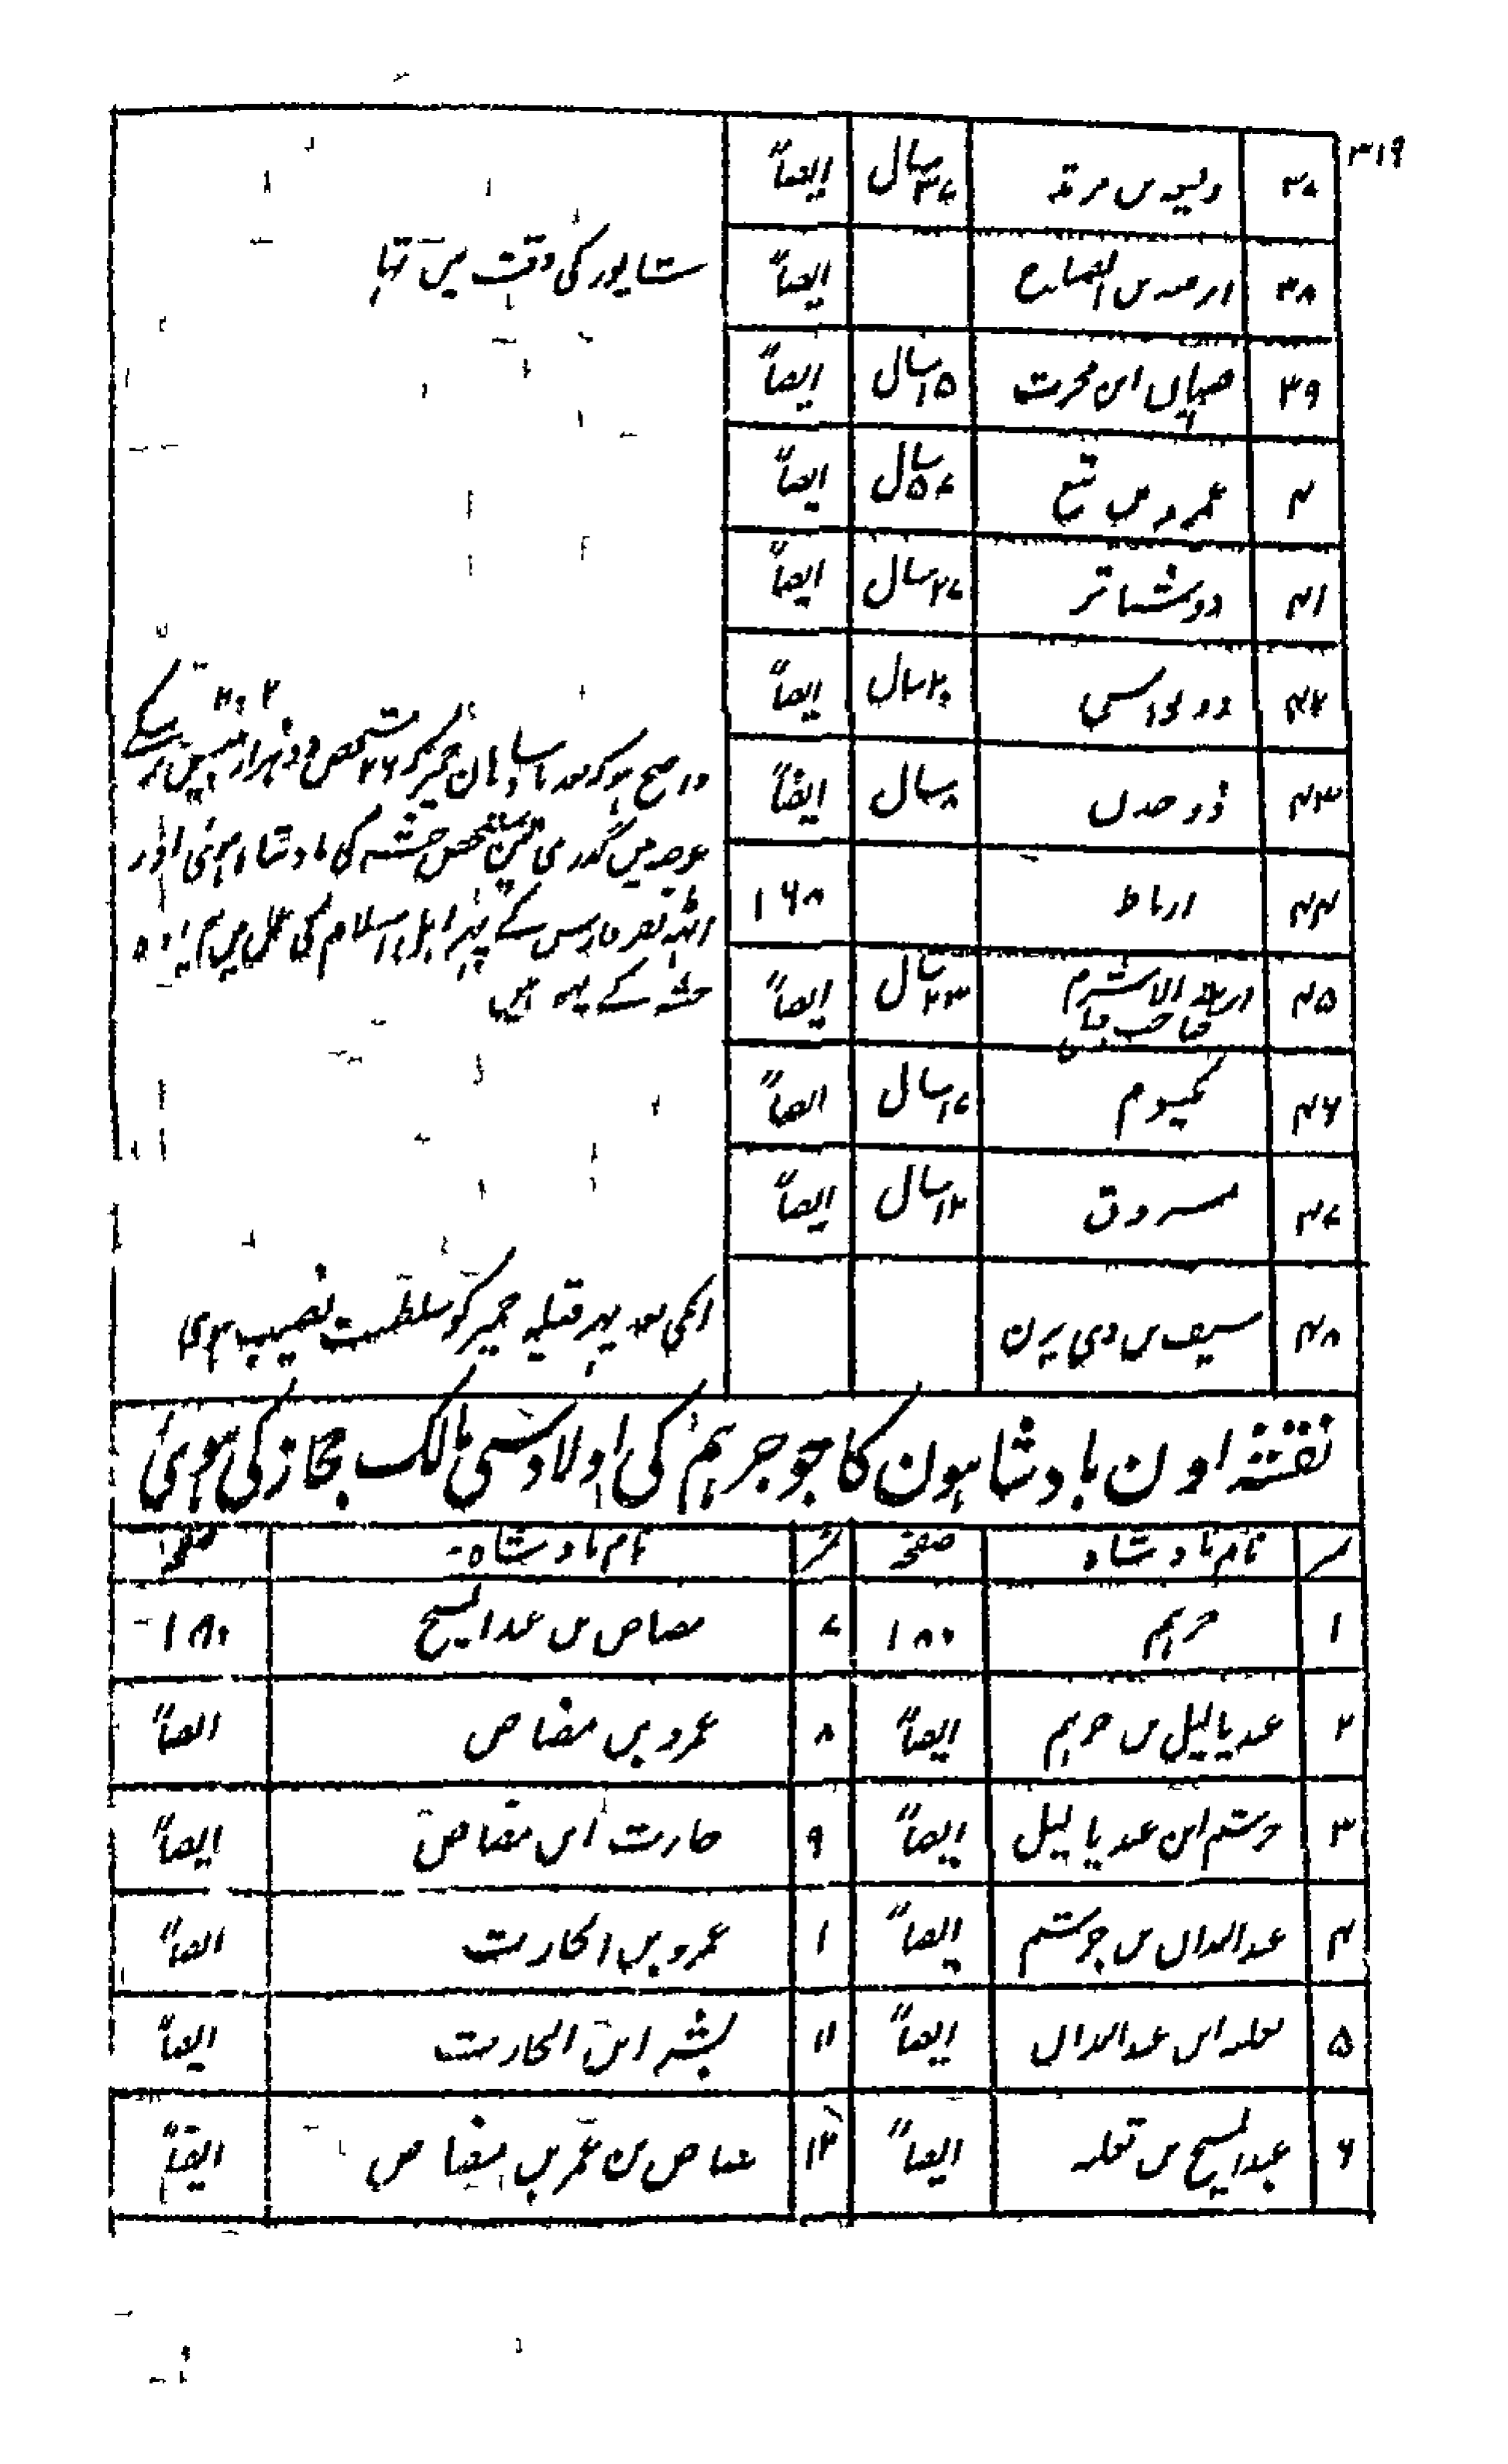 ۳۱۹
۳۷ ولید بن مرثد ۳۷ سال ایضاً
۳۸ ابرہہ بن الصباح ایضاً شاپور کی وقت میں تہا
۳۹ صہبان ابن محرث ۱۵ سال ایضاً
۴۰ عمرو بن تبع ۵۷ سال ایضاً
۴۱ ذوشناتر ۲۷ سال ایضاً
۴۲ ذو نواس ۲۰ سال ایضاً
۴۳ ذو جدن ۸ سال ایضاً
واضح ہو کہ بادشاہان حمیر کو ۲۶ شخص دو ہزار بیس برسکے
۲۰۲۰
عرصہ میں گذری تین شخص حبشہ کی بادشاہ ہوئی اور
۴۴ ارباط ۱۶۸
آٹھ نفر فارس کے پہر اہل اسلام کی عمل میں آیا
۴۵ ابرہہ الاشرم صاحب فیل ۲۳ سال ایضاً
حبشہ کے یہہ ہیں
۴۶ یکسوم ۱۷ سال ایضاً
۴۷ مسروق ۱۲ سال ایضاً
۴۸ سیف بن ذی یزن انکی بعد پہر قبیلہ حمیر کو سلطنت نصیب ہوئی
نقشہ اون بادشاہون کا جو جرہم کی اولاد سی مالک حجاز کی ہوئی
نمبر نام بادشاہ صفحہ نمبر نام بادشاہ صفحہ
۱ جرہم ۱۸۰ ۷ مضاض بن عبد المسیح ۱۸۰
۲ عبد یالیل بن جرہم ایضاً ۸ عمرو بن مضاض ایضاً
۳ جرشم ابن عبد یالیل ایضاً ۹ حارث ابن مضاض ایضاً
۴ عبد المدان بن جرشم ایضاً ۱۰ عمرو بن الحارث ایضاً
۵ ثعلبہ ابن عبد المدان ایضاً ۱۱ بشر ابن الحارث ایضاً
۶ عبد المسیح بن ثعلبہ ایضاً ۱۲ مضاض بن عمر بن مضاض ایضاً